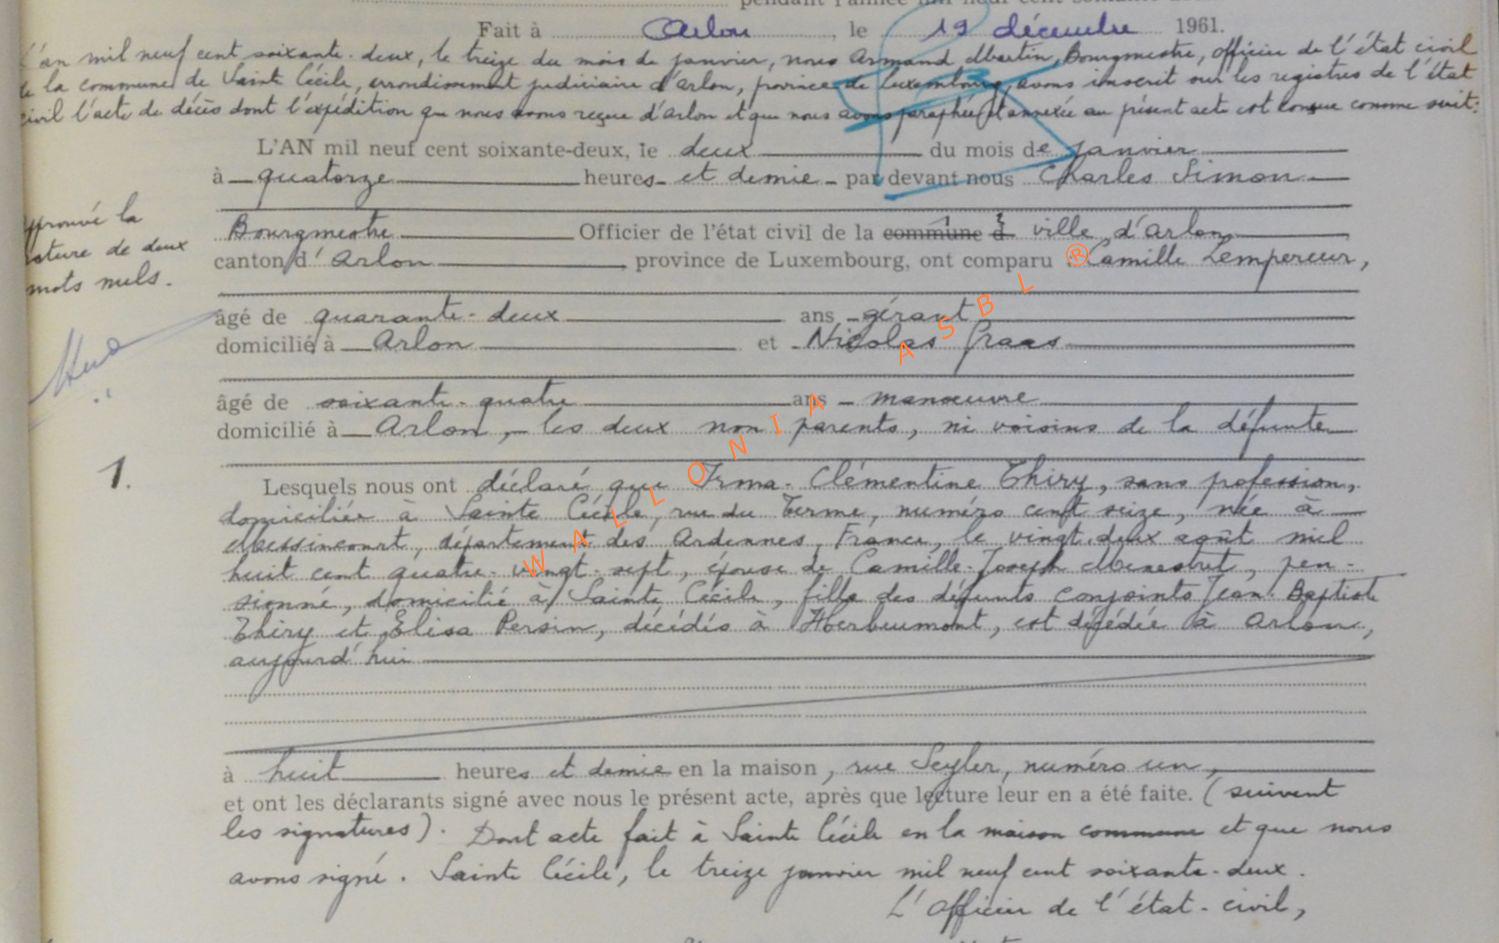 Fait à Arlon, le 19 décembre 1961.
L'an mil neuf cent soixante-deux, le treize du mois de janvier, nous Armand Martin, Bourgmestre, officier de l'état civil
de la commune de Sainte Cécile, arrondissement judiciaire d'Arlon, province de Luxembourg, avons inscrit sur les registres de l'état
civil l'acte de décès dont l'expédition que nous avons reçue d'Arlon et que nous avons paraphée et annexée au présent acte est conçue comme suit:
L'AN mil neuf cent soixante-deux, le deux du mois de janvier
à quatorze heures et demie par devant nous Charles Simon
Bourgmestre Officier de l'état civil de la commune d ville d'Arlon
canton d'Arlon, province de Luxembourg, ont comparu Camille Lempereur,
âgé de quarante-deux ans gérant
domicilié à Arlon et Nicolas Graas
âgé de soixante-quatre ans manœuvre
domicilié à Arlon, les deux non parents, ni voisins de la défunte
approuvé la
rature de deux
mots nuls.
1.
Lesquels nous ont déclaré que Irma-Clémentine Thiry, sans profession,
domiciliée à Sainte Cécile, rue du Terme, numéro cent seize, née à
Messincourt, département des Ardennes, France, le vingt-deux août mil
huit cent quatre-vingt-sept, épouse de Camille-Joseph Menestret, pen-
sionné, domicilié à Sainte Cécile, fille des défunts conjoints Jean-Baptiste
Thiry et Elisa Persin, décédés à Herbeumont, est décédée à Arlon,
aujourd'hui
à huit heures et demie en la maison, rue Seyler, numéro un,
et ont les déclarants signé avec nous le présent acte, après que lecture leur en a été faite. (suivent
les signatures). Dont acte fait à Sainte Cécile en la maison commune et que nous
avons signé. Sainte Cécile, le treize janvier mil neuf cent soixante-deux.
L'Officier de l'état-civil,
WALLONIA ASBL ®